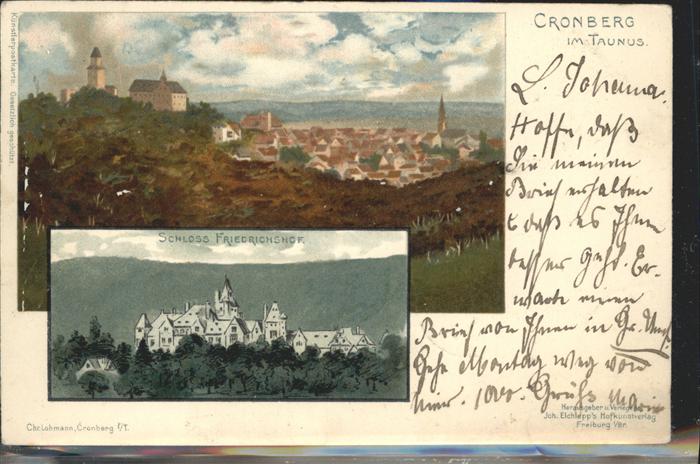 CRONBERG
IM TAUNUS.
Künstlerpostkarte. Gesetzlich geschützt.
L. Johanna.
Hoffe, daß
Sie meinen
Brief erhalten
& daß es Ihnen
besser geht. Er-
warte einen
Brief von Ihnen in Gr.
Gehe Montag weg von
hier. Gruß Marie
SCHLOSS FRIEDRICHSHOF.
Chr. Lohmann, Cronberg i/T.
Herausgeber u. Verleger
Joh. Elchlepp's Hofkunstverlag
Freiburg i/Br.